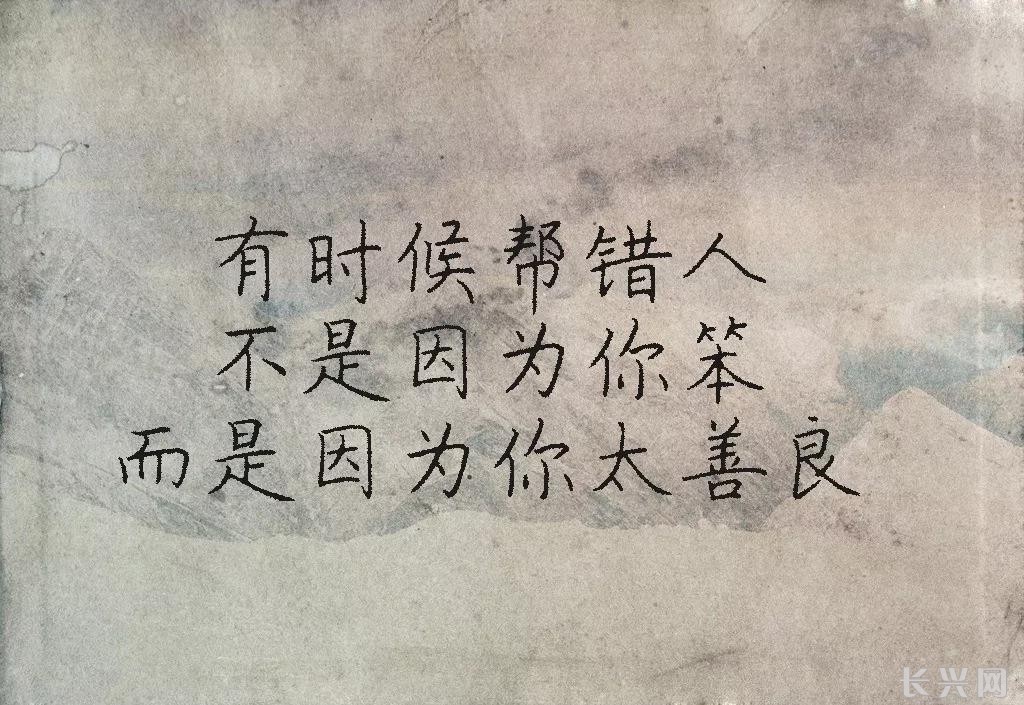 有时候帮错人
不是因为你笨
而是因为你太善良
长兴网